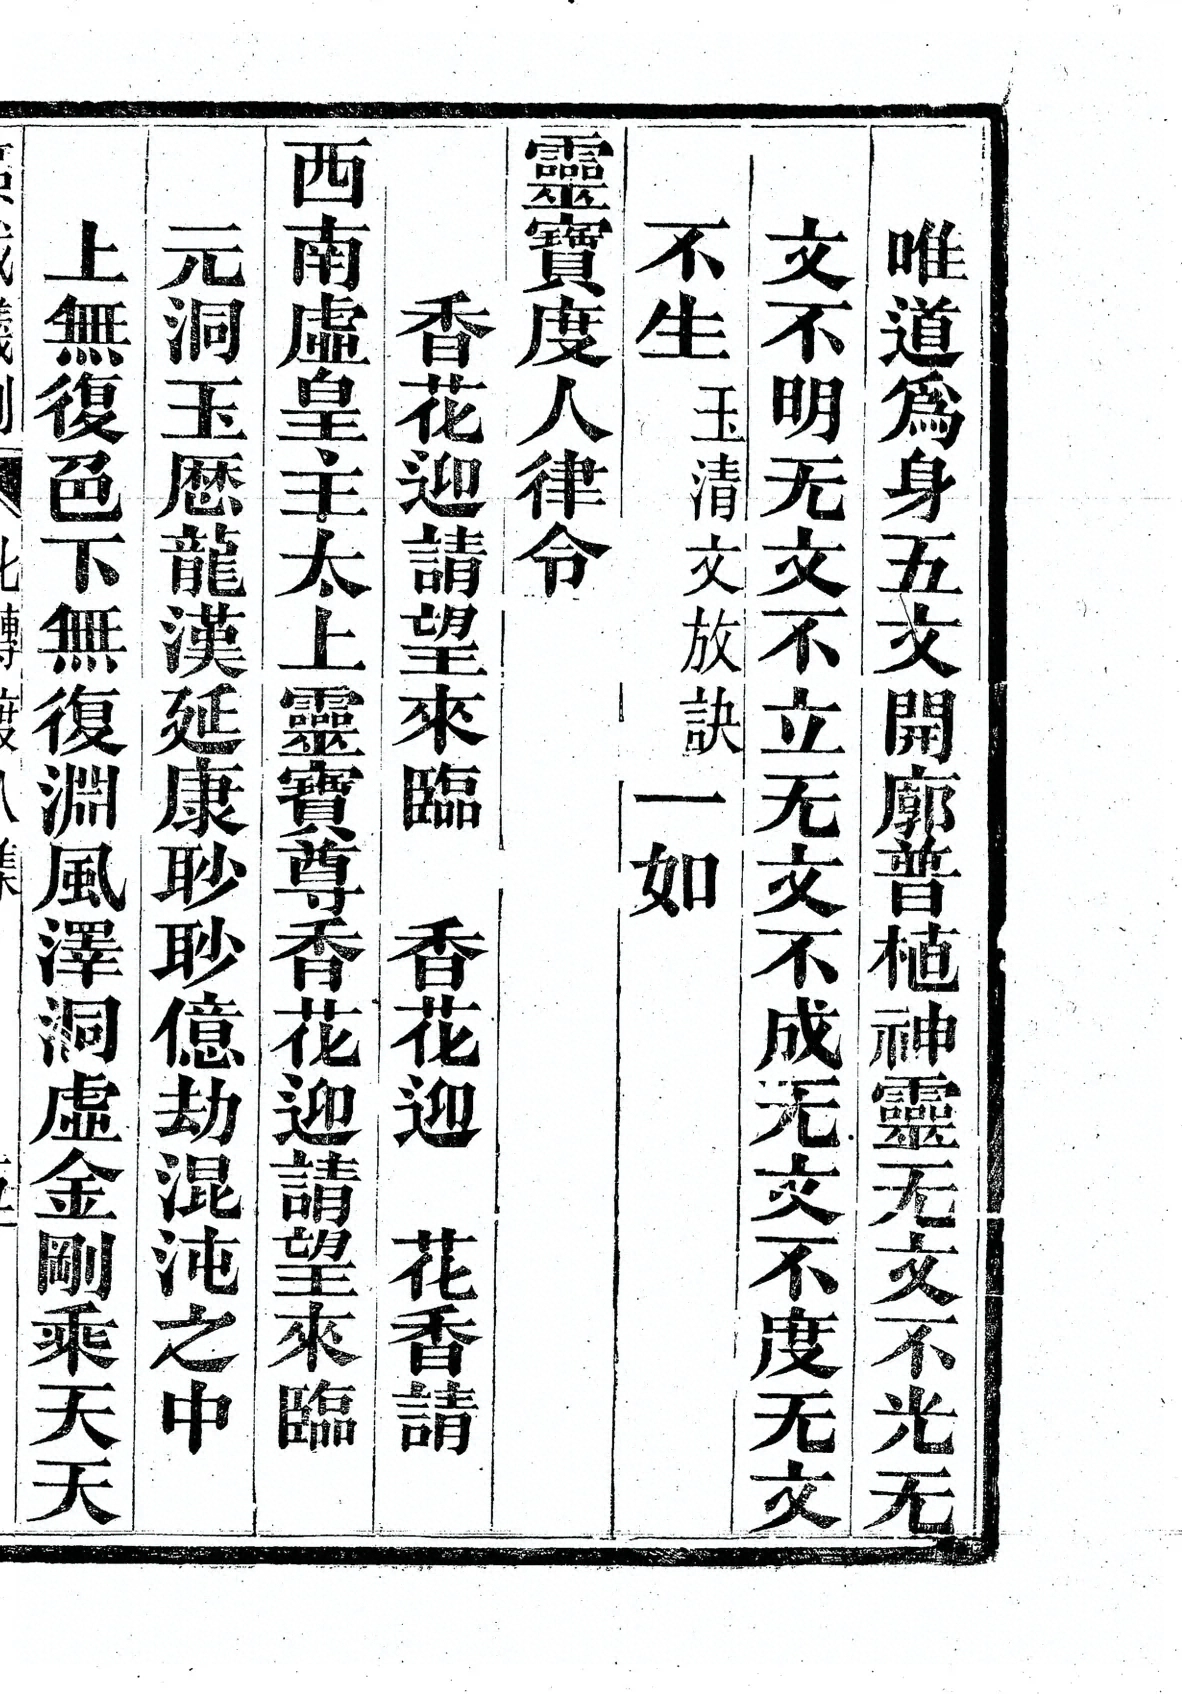 唯道爲身五文開廓普植神靈无文不光无
文不明无文不立无文不成无文不度无文
不生玉清文放訣一如
靈寶度人律令
香花迎請望來臨 香花迎 花香請
西南虛皇主太上靈寶尊香花迎請望來臨
元洞玉厯龍漢延康眇眇億劫混沌之中
上無復色下無復淵風澤洞虛金剛乘天天